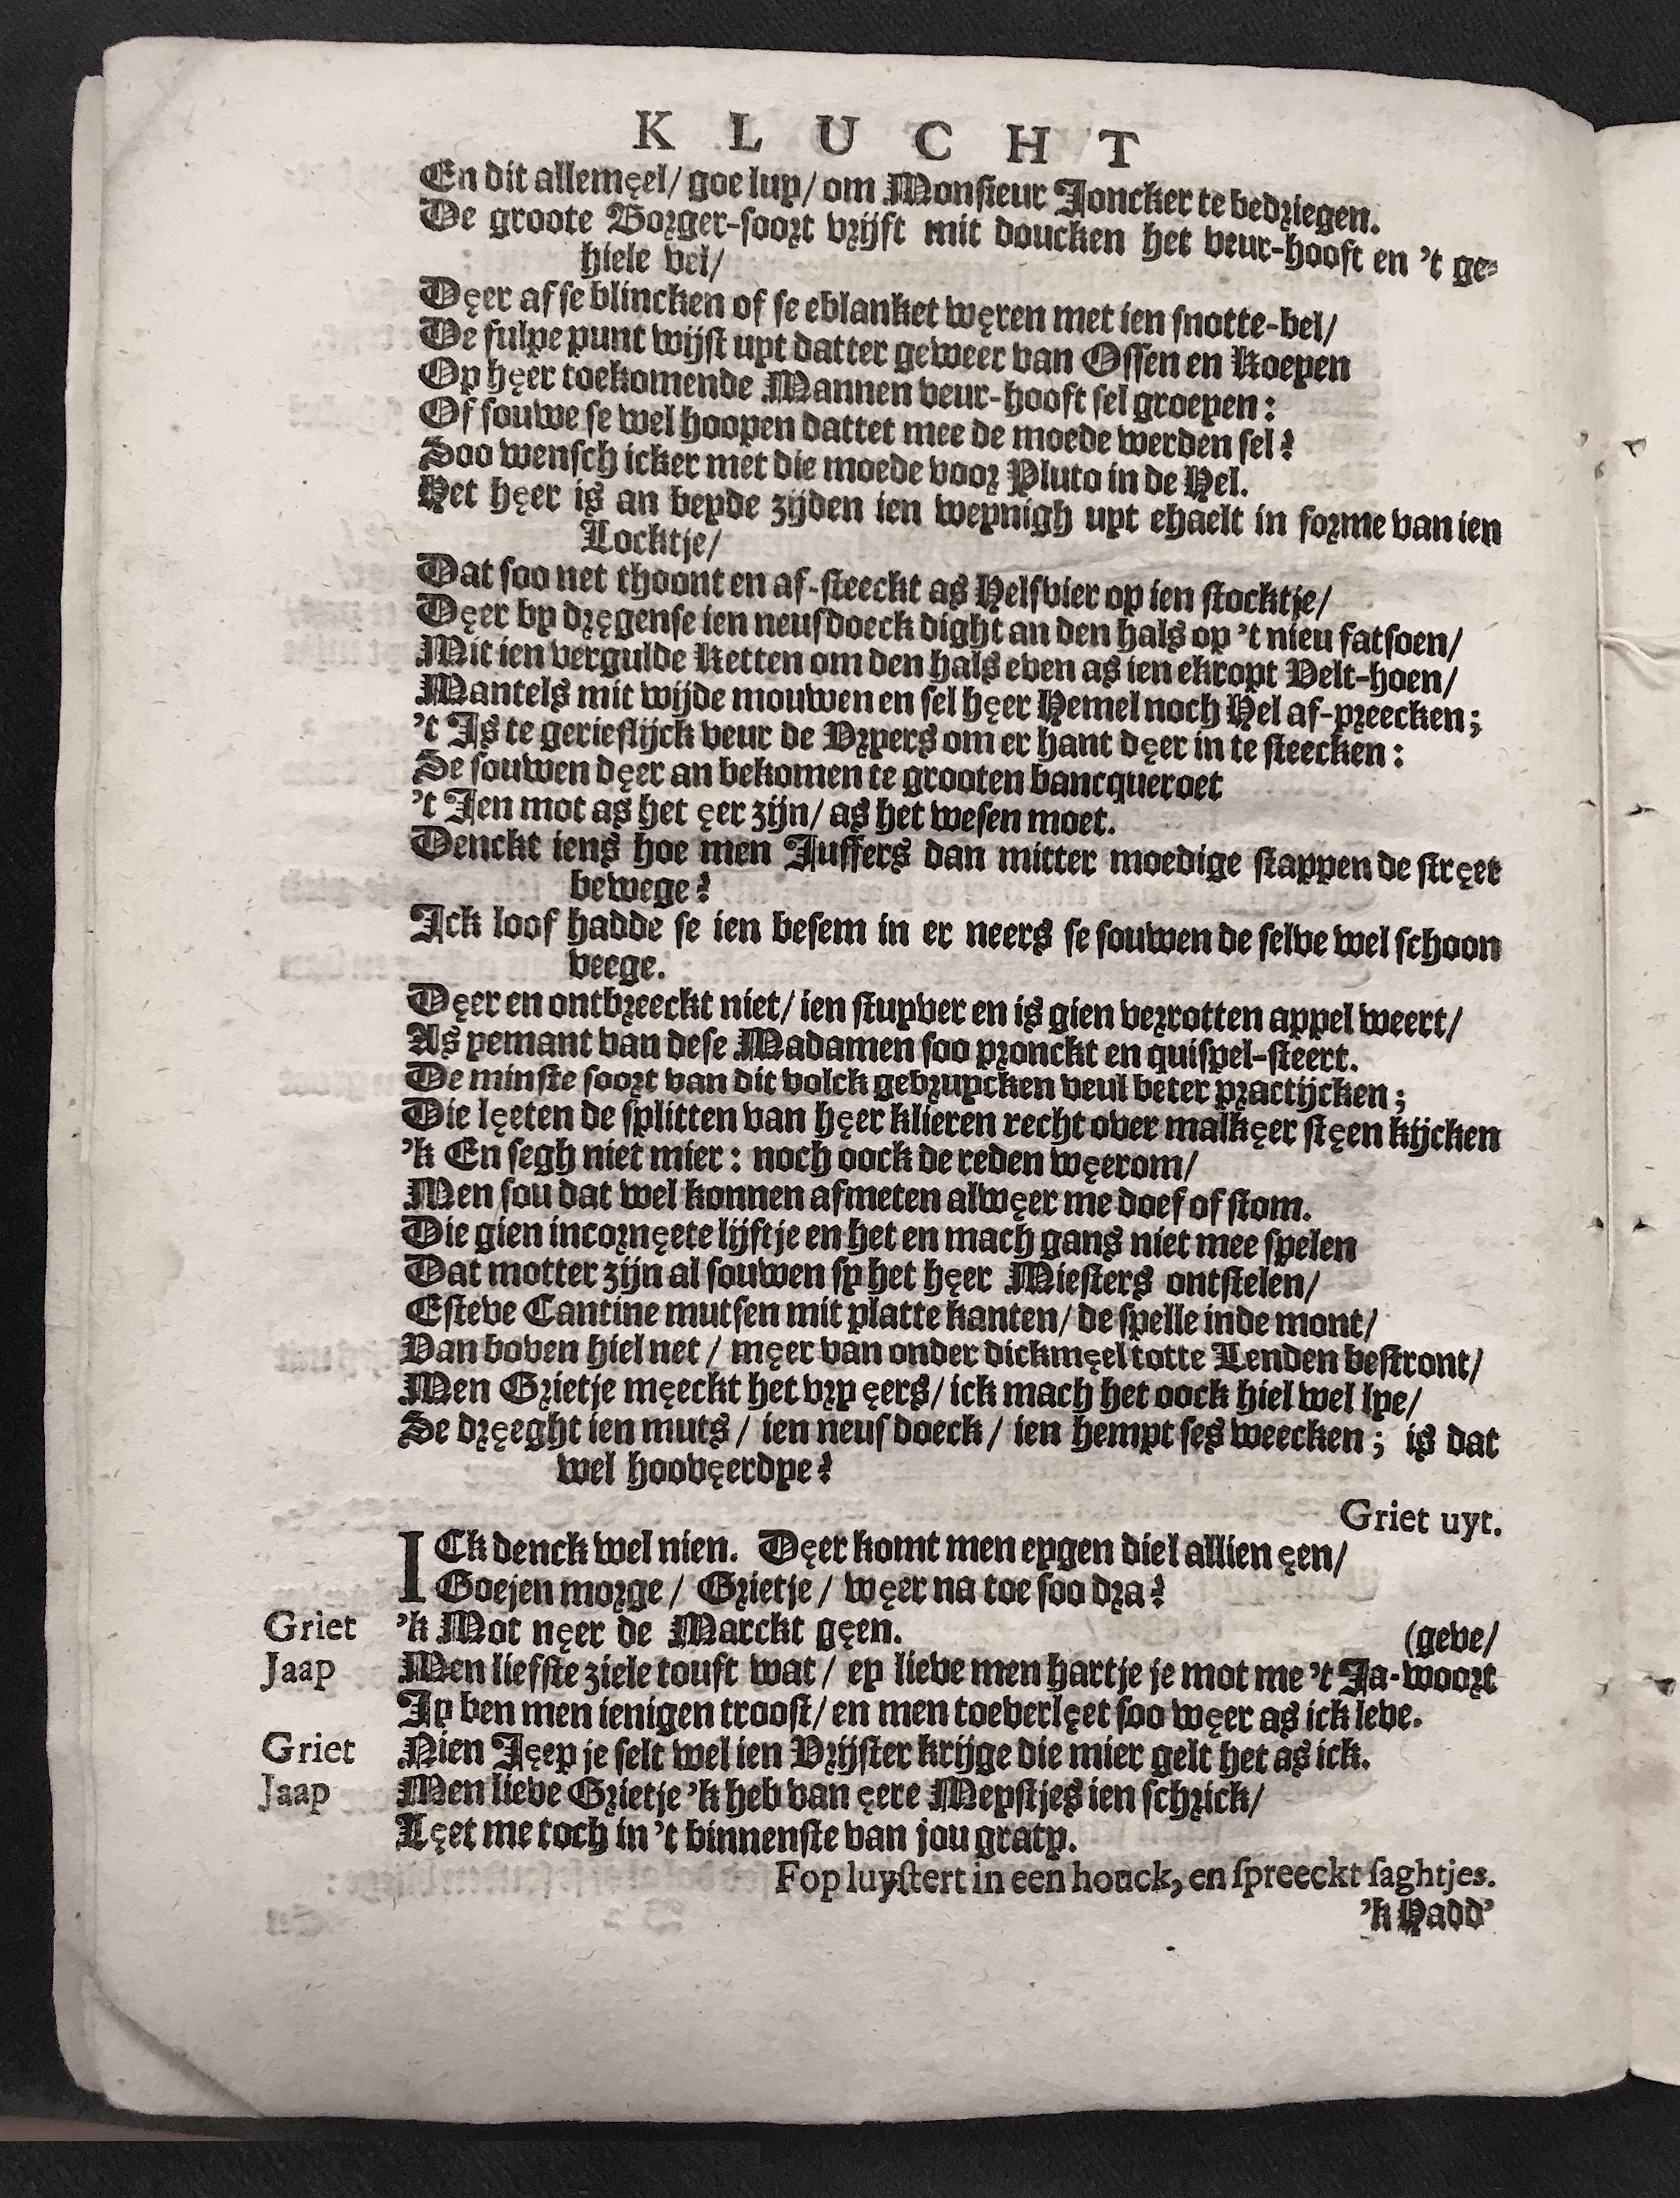 KLUCHT
En dit allemęel/ goe luy/ om Monsieur Joncker te bedriegen.
De groote Borger-soort vrijft mit doucken het veur-hooft en 't ge-
hiele vel/
Dęer af se blincken of se eblanket węren met ien snotte-bel/
De fulpe punt wijst uyt datter geweer van Ossen en Koeyen
Op hęer toekomende Mannen veur-hooft sel groeyen:
Of souwe se wel hoopen dattet mee de moede werden sel?
Soo wensch icker met die moede voor Pluto in de Hel.
Het hęer is an beyde zijden ien weynigh uyt ehaelt in forme van ien
Locktje/
Dat soo net thoont en af-steeckt as Helsvier op ien stocktje/
Dęer by dręgense ien neusdoeck dight an den hals op 't nieu fatsoen/
Mit ien vergulde Ketten om den hals even as ien ekropt Velt-hoen/
Mantels mit wijde mouwen en sel hęer Hemel noch Hel af-preecken;
't Is te gerieflijck veur de Vryers om er hant dęer in te steecken:
Se souwen dęer an bekomen te grooten bancqueroet
't Ien mot as het ęer zijn/ as het wesen moet.
Denckt iens hoe men Juffers dan mitter moedige stappen de stręet
bewege?
Ick loof hadde se ien besem in er neers se souwen de selve wel schoon
veege.
Dęer en ontbreeckt niet/ ien stuyver en is gien verrotten appel weert/
As yemant van dese Madamen soo pronckt en quispel-steert.
De minste soort van dit volck gebruycken veul beter practijcken;
Die lęeten de splitten van hęer klieren recht over malkęer stęen kijcken
'k En segh niet mier: noch oock de reden węerom/
Men sou dat wel konnen afmeten alwęer me doef of stom.
Die gien incornęete lijftje en het en mach gans niet mee spelen
Dat motter zijn al souwen sy het hęer Miesters ontstelen/
Esteve Cantine mutsen mit platte kanten/ de spelle inde mont/
Van boven hiel net/ męer van onder dickmęel totte Lenden bestront/
Men Grietje męeckt het vry ęers/ ick mach het oock hiel wel lye/
Se dręeght ien muts/ ien neus doeck/ ien hempt ses weecken; is dat
wel hoovęerdye?
Griet uyt.
ICk denck wel nien. Dęer komt men eygen diel allien ęen/
Goejen morge/ Grietje/ węer na toe soo dra?
Griet 'k Mot nęer de Marckt gęen. (geve/
Jaap Men liefste ziele touft wat/ ey lieve men hartje je mot me 't Ja-woort
Jy ben men ienigen troost/ en men toeverlęet soo węer as ick leve.
Griet Nien Jęep je selt wel ien Vrijster krijge die mier gelt het as ick.
Jaap Men lieve Grietje 'k heb van ęere Meystjes ien schrick/
Lęet me toch in 't binnenste van jou graty.
Fop luystert in een houck, en spreeckt saghtjes.
'k Hadd'